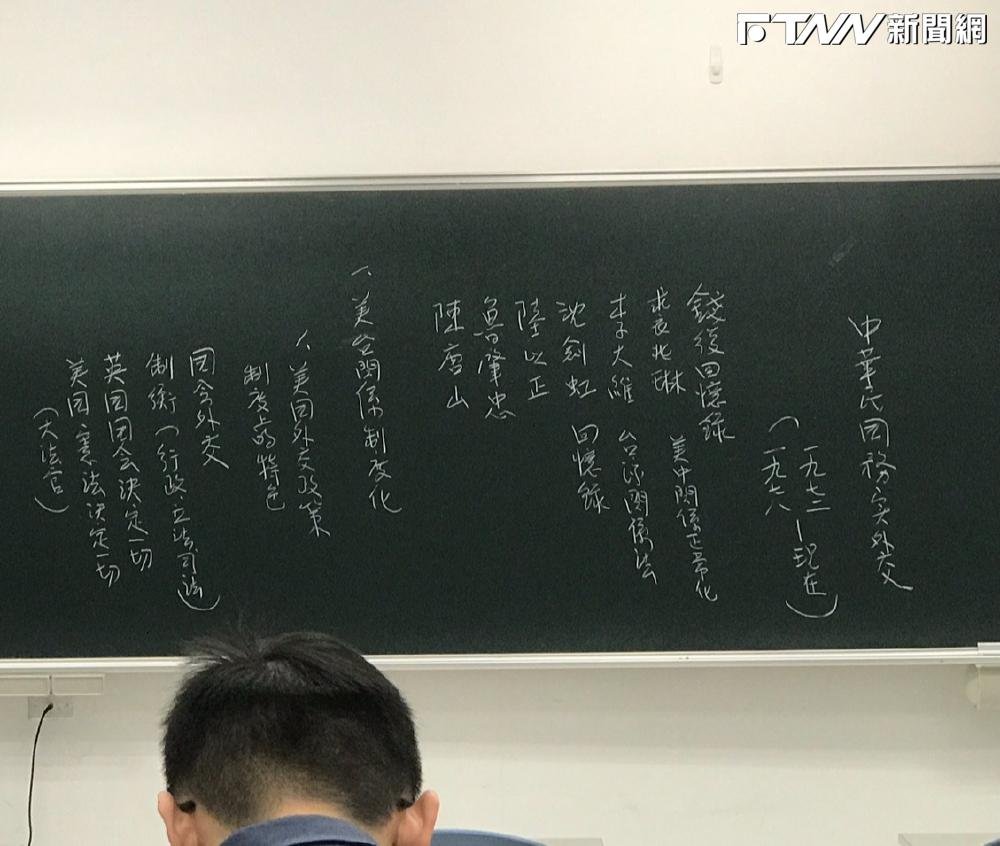 FTNN新聞網
中華民国務実外交
(一九七二—現在)
一九六八
錢復回憶錄
美中関係正常化
裘兆琳
李大維
台湾関係法
沈劍虹
回憶錄
陸以正
魯肇忠
陳唐山
一、美台関係制度化
1、美国外交政策
制度上的特色
国会外交
制衡(行政立法司法)
英国国会決定一切
美国憲法決定一切
(大法官)